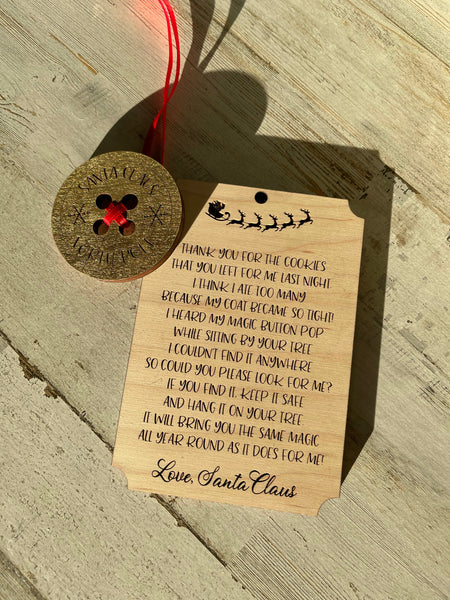 SANTA CLAUS
NORTH POLE
THANK YOU FOR THE COOKIES
THAT YOU LEFT FOR ME LAST NIGHT.
I THINK I ATE TOO MANY
BECAUSE MY COAT BECAME SO TIGHT!
I HEARD MY MAGIC BUTTON POP
WHILE SITTING BY YOUR TREE
I COULDN'T FIND IT ANYWHERE
SO COULD YOU PLEASE LOOK FOR ME?
IF YOU FIND IT, KEEP IT SAFE
AND HANG IT ON YOUR TREE
IT WILL BRING YOU THE SAME MAGIC
ALL YEAR ROUND AS IT DOES FOR ME!
Love, Santa Claus